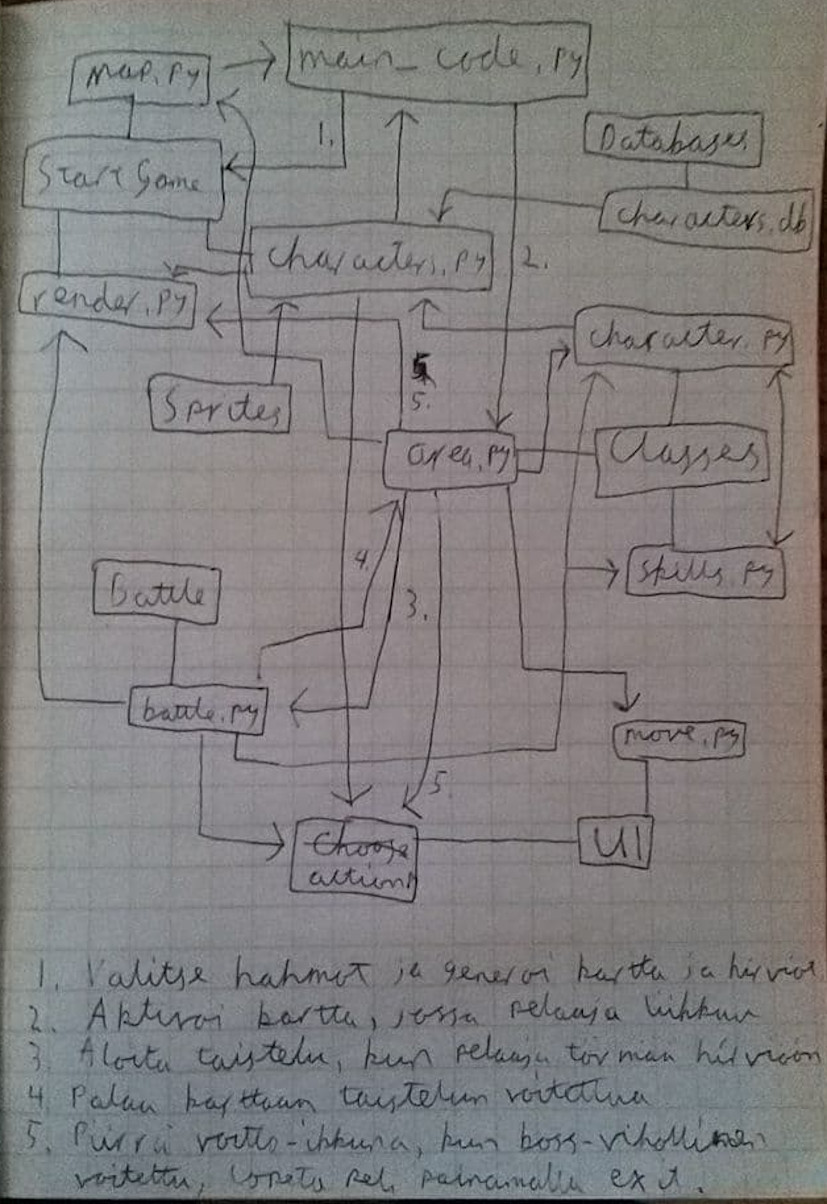 main_code.py
map.py
1.
Databases
Start Game
characters.db
characters.py
2.
render.py
character.py
5.
Sprites
area.py
Classes
4.
skills.py
Battle
3.
battle.py
move.py
5.
Choose
action
UI
1. Valitse hahmot ja generoi kartta ja hirviöt
2. Aktivoi kartta, jossa pelaaja liikkuu
3 Aloita taistelu, kun pelaaja törmää hirviöön
4 Palaa karttaan taistelun voitettua
5. Piirrä voitto-ikkuna, kun boss-vihollinen
voitettu, lopeta peli painamalla exit.